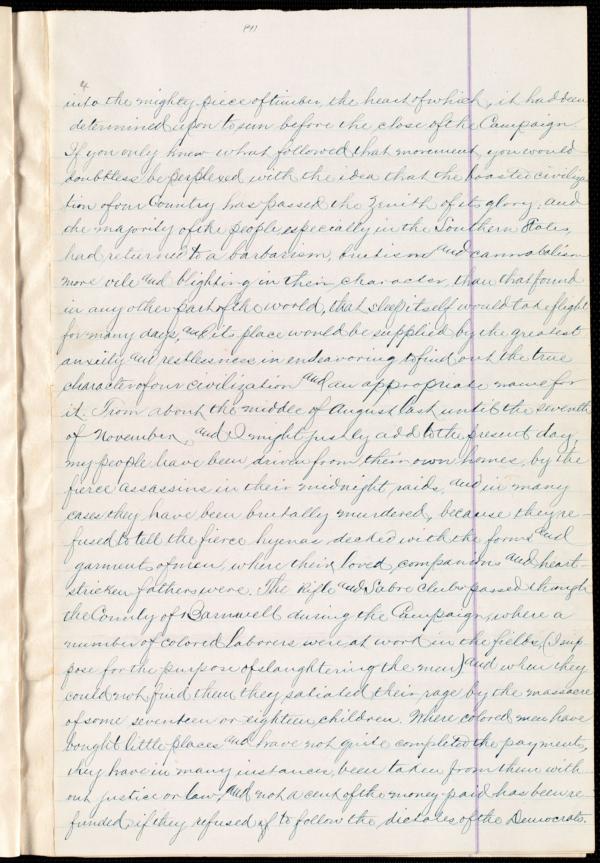 4
into the mighty piece of timber, the heart of which, it had been
determined upon to sun before the close of the Campaign.
If you only knew what followed that movement, you would
doubtless be perplexed with the idea that the boasted civiliza
tion of our Country has passed the Zenith of its glory, and
the majority of the people, especially in the Southern States,
had returned to a barbarism, brutism and cannabalism
more vile and blighting in their character, than that found
in any other part of the world, that sleep itself would take flight
for many days, and its place would be supplied by the greatest
anxiety and restlessness in endeavoring to find out the true
character of our civilization and an appropriate name for
it. From about the middle of August last until the seventh
of November, and I might justly add to the present day,
my people have been driven from their own homes, by the
fierce assassins in their midnight raids, and in many
cases they have been brutally murdered, because they re-
fused to tell the fierce hyenas decked with the forms and
garments of men, where their loved companions and heart-
stricken fathers were. The Rifle and Sabre Clubs passed through
the County of Barnwell during the Campaign, where a
number of colored laborers were at work in the fields, (I sup
pose for the purpose of slaughtering the men) and when they
could not find them they satiated their rage by the massacre
of some seventeen or eighteen children. Where colored men have
bought little places and have not quite completed the payments,
they have in many instances, been taken from them with
out justice or law, and not a cent of the money paid has been re
funded, if they refused to follow the dictates of the Democrats.